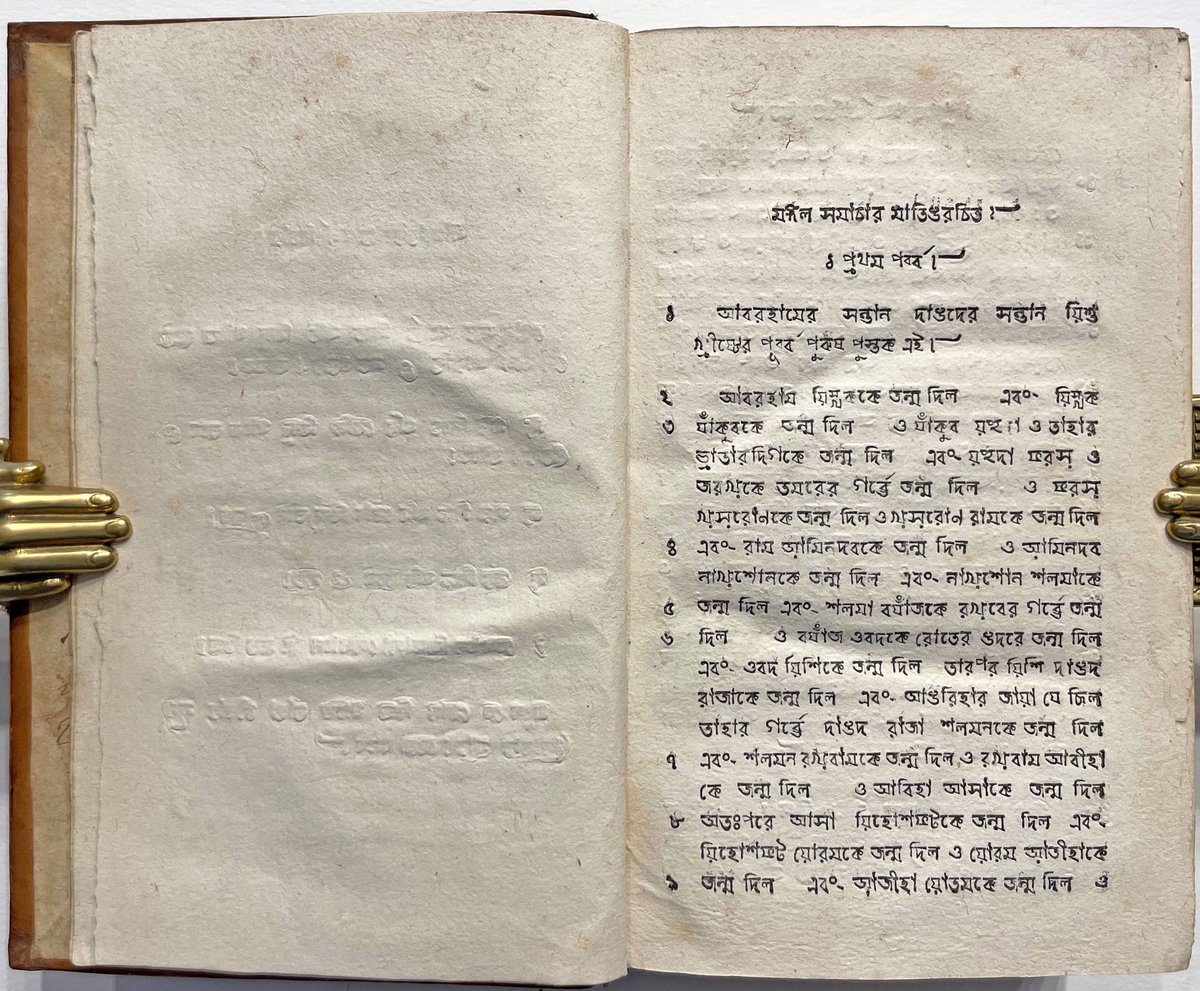 মঙ্গল সমাচার মাতিওরচিত্ত।
১ প্রথম পর্ব্ব।
১ আবরহামের সন্তান দাওদের সন্তান য়িশু
খ্রীষ্টের পূর্ব্ব পুরুষ পুস্তক এই।
২ আবরহাম য়িস্হককে জন্ম দিল এবং য়িস্হক
৩ যাঁকুবকে জন্ম দিল ও যাঁকুব য়হুদা ও তাহার
ভ্রাতারদিগকে জন্ম দিল এবং য়হুদা ফরস ও
জরখকে তমরের গর্ব্ভে জন্ম দিল ও ফরস
খসরোনকে জন্ম দিল ও খসরোন রামকে জন্ম দিল
৪ এবং রাম আমিনদবকে জন্ম দিল ও আমিনদব
নাখশোনকে জন্ম দিল এবং নাখশোন শলমাকে
৫ জন্ম দিল এবং শলমা বযাঁজকে রখবের গর্ব্ভে জন্ম
৬ দিল ও বযাঁজ ওবদকে রোতের ওদরে জন্ম দিল
এবং ওবদ য়িশিকে জন্ম দিল তারপর য়িশি দাওদ
রাজাকে জন্ম দিল এবং আওরিহার জায়া যে ছিল
তাহার গর্ব্ভে দাওদ রাজা শলমনকে জন্ম দিল
৭ এবং শলমন রখবামকে জন্ম দিল ও রখবাম আবীহা
কে জন্ম দিল ও আবিহা আসাকে জন্ম দিল
৮ অতঃপরে আসা য়িহোশফটকে জন্ম দিল এবং
য়িহোশফট য়োরমকে জন্ম দিল ও য়োরম আজীহাকে
৯ জন্ম দিল এবং আজীহা য়োতমকে জন্ম দিল ও